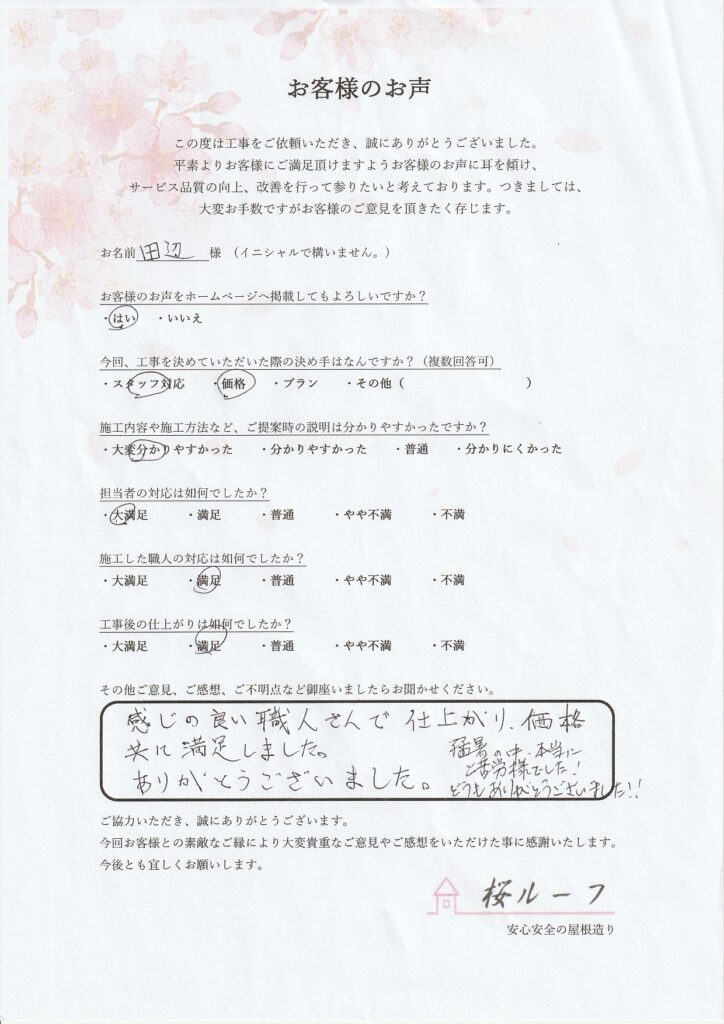 お客様のお声
この度は工事をご依頼いただき、誠にありがとうございました。
平素よりお客様にご満足頂けますようお客様のお声に耳を傾け、
サービス品質の向上、改善を行って参りたいと考えております。つきましては、
大変お手数ですがお客様のご意見を頂きたく存じます。
お名前 田辺 様 （イニシャルで構いません。）
お客様のお声をホームページへ掲載してもよろしいですか？
・はい ・いいえ
今回、工事を決めていただいた際の決め手はなんですか？（複数回答可）
・スタッフ対応 ・価格 ・プラン ・その他（ ）
施工内容や施工方法など、ご提案時の説明は分かりやすかったですか？
・大変分かりやすかった ・分かりやすかった ・普通 ・分かりにくかった
担当者の対応は如何でしたか？
・大満足 ・満足 ・普通 ・やや不満 ・不満
施工した職人の対応は如何でしたか？
・大満足 ・満足 ・普通 ・やや不満 ・不満
工事後の仕上がりは如何でしたか？
・大満足 ・満足 ・普通 ・やや不満 ・不満
その他ご意見、ご感想、ご不明点など御座いましたらお聞かせください。
感じの良い職人さんで仕上がり、価格
共に満足しました。
ありがとうございました。
猛暑の中、本当に
ご苦労様でした！
どうもありがとうございました!!
ご協力いただき、誠にありがとうございます。
今回お客様との素敵なご縁により大変貴重なご意見やご感想をいただけた事に感謝いたします。
今後とも宜しくお願いします。
桜ルーフ
安心安全の屋根造り